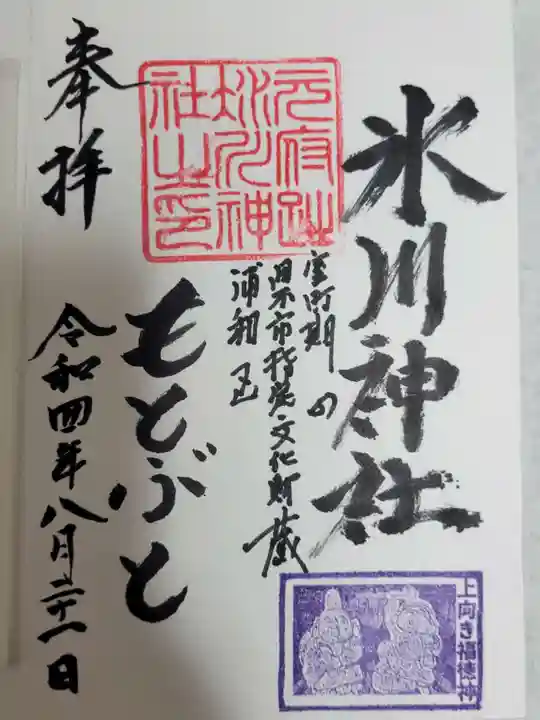 氷川神社
元府趾
氷川神
社之印
室町期の
市指定文化財蔵
浦和
もとぶと
奉拝
令和四年八月二十一日
上向き福徳神